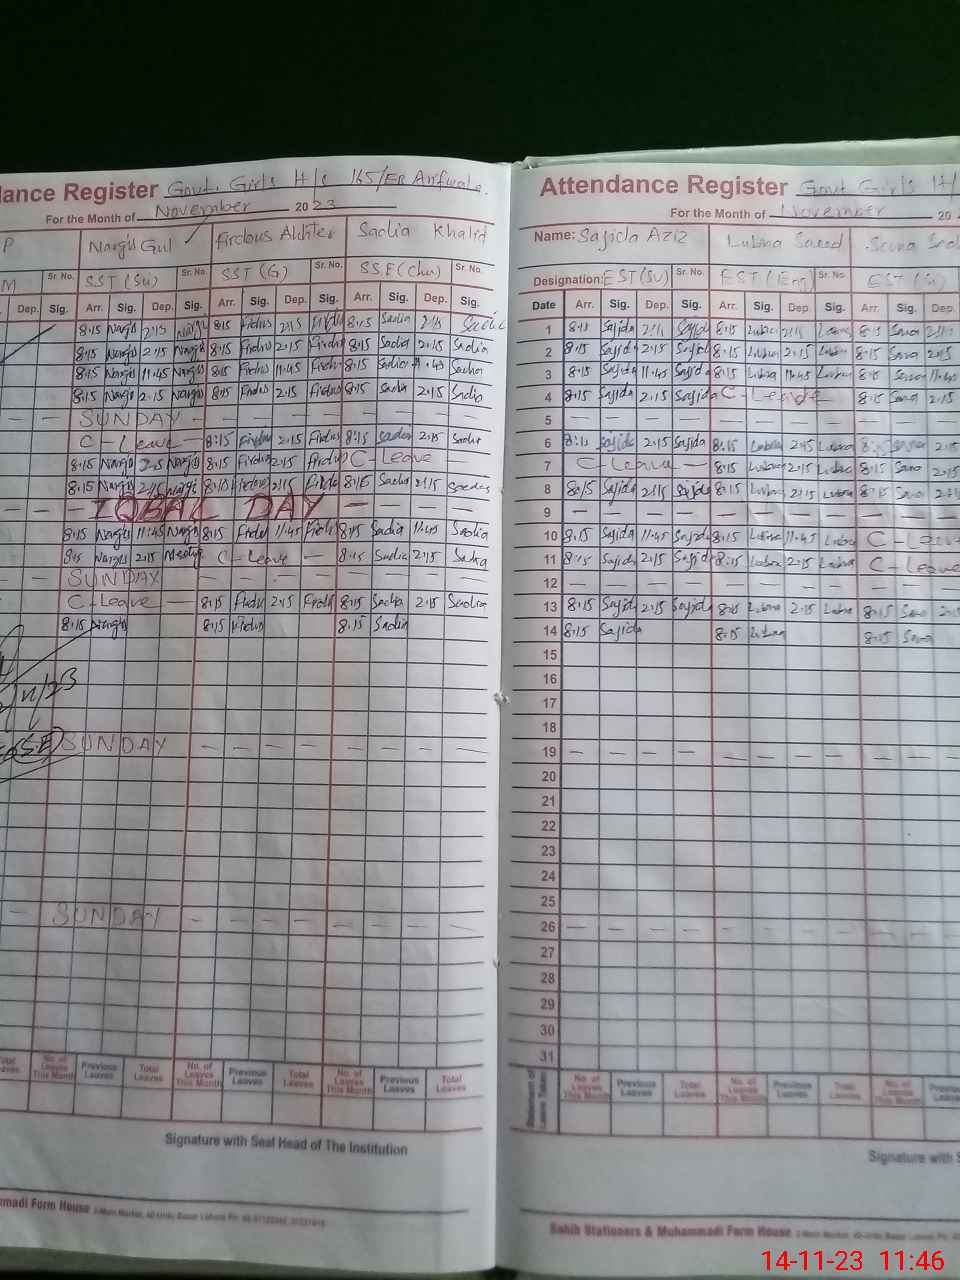 dance Register Govt. Girls H/s 165/EB Arifwala.
For the Month of November 2023
P Nargis Gul Firdous Akhter Sadia Khalid
M SST (Su) Sr. No. SST (G) Sr. No. S.S.E (Chu) Sr. No.
Dep. Sig. Arr. Sig. Dep. Sig. Arr. Sig. Dep. Sig. Arr. Sig. Dep. Sig.
8:15 Nargis 2:15 Nargis 8:15 Firdus 2:15 Firdus 8:15 Sadia 2:15 Sadia
8:15 Nargis 2:15 Nargis 8:15 Firdus 2:15 Firdus 8:15 Sadia 2:15 Sadia
8:15 Nargis 11:45 Nargis 8:15 Firdus 11:45 Firdus 8:15 Sadia 11:45 Sadia
8:15 Nargis 2:15 Nargis 8:15 Firdus 2:15 Firdus 8:15 Sadia 2:15 Sadia
SUNDAY — — — — — — — —
C-Leave — 8:15 Firdus 2:15 Firdus 8:15 Sadia 2:15 Sadia
8:15 Nargis 2:15 Nargis 8:15 Firdus 2:15 Firdus C-Leave —
8:15 Nargis 2:15 Nargis 8:15 Firdus 2:15 Firdus 8:15 Sadia 2:15 Sadia
— — IQBAL DAY — — — —
8:15 Nargis 11:45 Nargis 8:15 Firdus 11:45 Firdus 8:15 Sadia 11:45 Sadia
8:15 Nargis 2:15 Meeting C-Leave — 8:15 Sadia 2:15 Sadia
— — SUNDAY — — — — — — — —
C-Leave — 8:15 Firdus 2:15 Firdus 8:15 Sadia 2:15 Sadia
8:15 Nargis 8:15 Firdus 8:15 Sadia
SUNDAY — — — — — — — —
— SUNDAY — — — — — — — —
Total Leaves No. of Leaves This Month Previous Leaves Total Leaves No. of Leaves This Month Previous Leaves Total Leaves No. of Leaves This Month Previous Leaves Total Leaves
Signature with Seal Head of The Institution
mmadi Form House
Attendance Register Govt Girls H/
For the Month of November 20
Name: Sajida Aziz Lubna Saeed
Designation: EST (Su) Sr. No. EST (Eng) Sr. No. EST
Date Arr. Sig. Dep. Sig. Arr. Sig. Dep. Sig. Arr. Sig. Dep.
1 8:15 Sajida 2:15 Sajida 8:15 Lubna 2:15 Lubna 8:15 Sana 2:15
2 8:15 Sajida 2:15 Sajida 8:15 Lubna 2:15 Lubna 8:15 Sana 2:15
3 8:15 Sajida 11:45 Sajida 8:15 Lubna 11:45 Lubna 8:15 Sana 11:45
4 8:15 Sajida 2:15 Sajida C-Leave 8:15 Sana 2:15
5 — — — — — — — — — — —
6 8:15 Sajida 2:15 Sajida 8:15 Lubna 2:15 Lubna 8:15 Sana 2:15
7 C-Leave — 8:15 Lubna 2:15 Lubna 8:15 Sana 2:15
8 8:15 Sajida 2:15 Sajida 8:15 Lubna 2:15 Lubna 8:15 Sana 2:15
9 — — — — — — — — — — —
10 8:15 Sajida 11:45 Sajida 8:15 Lubna 11:45 Lubna C-Leave
11 8:15 Sajida 2:15 Sajida 8:15 Lubna 2:15 Lubna C-Leave
12 — — — — — — — — — — —
13 8:15 Sajida 2:15 Sajida 8:15 Lubna 2:15 Lubna 8:15 Sana 2:15
14 8:15 Sajida 8:15 Lubna 8:15 Sana
15
16
17
18
19 — — — — — — — — — — —
20
21
22
23
24
25
26 — — — — — — — — — — —
27
28
29
30
31
Statement of Leave Taken No. of Leaves This Month Previous Leaves Total Leaves No. of Leaves This Month Previous Leaves Total Leaves No. of Leaves This Month Previous Leaves
Signature with S
Sahib Stationers & Muhammadi Form House
14-11-23 11:46